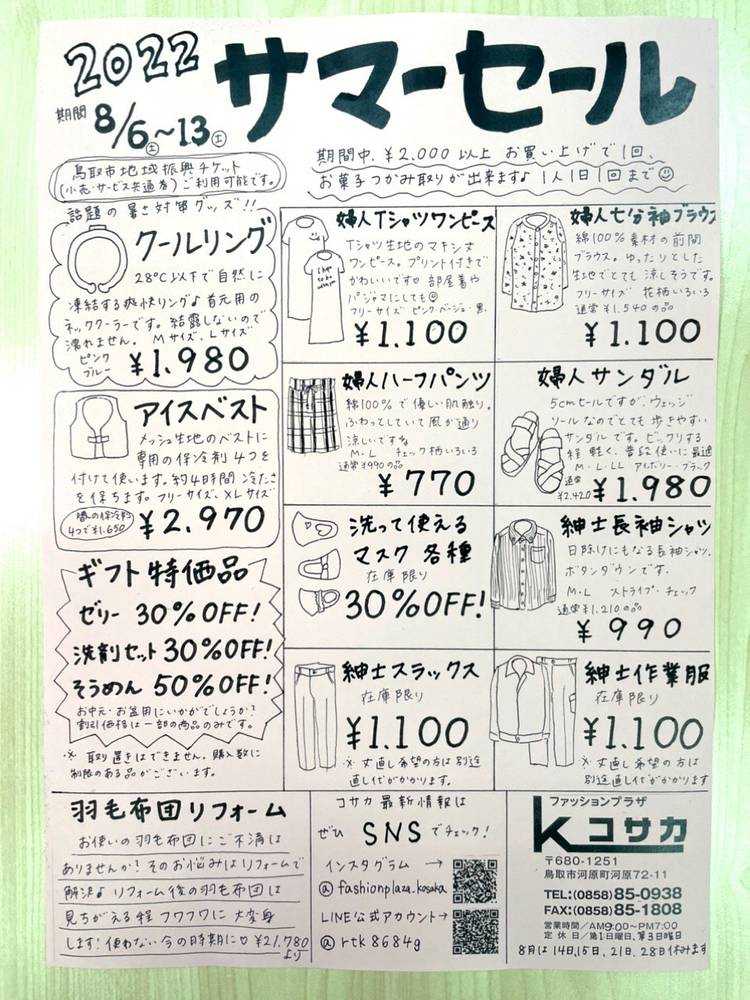 2022
サマーセール
期間 8/6(土)~13(土)
鳥取市地域振興チケット
(小売・サービス共通券)ご利用可能です。
期間中、¥2,000以上 お買い上げで1回、
お菓子つかみ取りが出来ます♪ 1人1日1回まで☺
話題の暑さ対策グッズ!!
クールリング
28℃以下で自然に
凍結する爽快リング♪ 首元用の
ネッククーラーです。結露しないので
濡れません。Mサイズ、Lサイズ
ピンク
ブルー
¥1,980
アイスベスト
メッシュ生地のベストに
専用の保冷剤4つを
付けて使います。約4時間 冷たさ
を保ちます。フリーサイズ、XLサイズ
4つで¥1,650
¥2,970
ギフト特価品
ゼリー 30%OFF!
洗剤セット 30%OFF!
そうめん 50%OFF!
お中元・お盆用にいかがでしょうか?
割引価格は一部の商品のみです。
※ 取り置きはできません。購入数に
制限のある品がございます。
婦人Tシャツワンピース
Tシャツ生地のマキシ丈
ワンピース。プリント付きで
かわいいです♡ 部屋着や
パジャマにしても☺
フリーサイズ ピンク・ベージュ・黒
¥1,100
婦人七分袖ブラウス
綿100%素材の前開
ブラウス。ゆったりとした
生地でとても涼しそうです。
フリーサイズ 花柄いろいろ
通常¥1,540の品
¥1,100
婦人ハーフパンツ
綿100%で優しい肌触り。
ふわっとしていて風が通り
涼しいですね
M・L チェック柄いろいろ
通常¥990の品
¥770
婦人サンダル
5cmヒールですが、ウェッジ
ソールなのでとても歩きやすい
サンダルです。ビックリする
程 軽く、普段使いに最適
M・L・LL アイボリー・ブラック
通常
¥2,420
¥1,980
洗って使える
マスク 各種
在庫限り
30%OFF!
紳士長袖シャツ
日除けにもなる長袖シャツ。
ボタンダウンです。
M・L ストライプ・チェック
通常¥1,210の品
¥990
紳士スラックス
在庫限り
¥1,100
※丈直し希望の方は別途
直し代がかかります
紳士作業服
在庫限り
¥1,100
※丈直し希望の方は
別途直し代がかかります
羽毛布団リフォーム
お使いの羽毛布団にご不満は
ありませんか? そのお悩みはリフォームで
解決♪ リフォーム後の羽毛布団は
見ちがえる程 フワフワに大変身
します! 使わない今の時期に♡ ¥21,780
より
コサカ 最新情報は
ぜひ SNSでチェック!
インスタグラム →
@fashionplaza.kosaka
LINE公式アカウント→
@rtk8684g
ファッションプラザ
Kコサカ
〒680-1251
鳥取市河原町河原72-11
TEL:(0858)85-0938
FAX:(0858)85-1808
営業時間/AM9:00~PM7:00
定休日/第1日曜日、第3日曜日
8月は14日,15日,21日,28日休みます